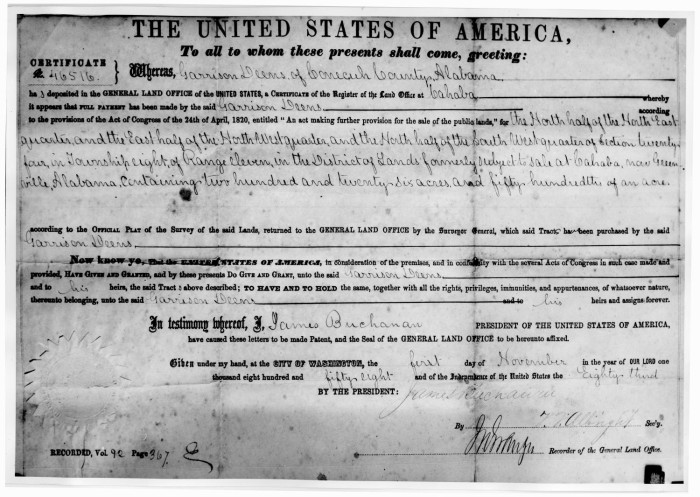 THE UNITED STATES OF AMERICA,
To all to whom these presents shall come, greeting:
CERTIFICATE
No. 46516. } Whereas, Garrison Deens, of Conecuh County, Alabama
ha s deposited in the GENERAL LAND OFFICE of the UNITED STATES, a CERTIFICATE of the Register of the Land Office at Cahaba whereby
it appears that FULL PAYMENT has been made by the said Garrison Deens according
to the provisions of the Act of Congress of the 24th of April, 1820, entitled "An act making further provision for the sale of the public lands," for the North half of the North East
quarter, and the East half of the North West quarter, and the North half of the South West quarter of Section twenty
four, in Township eight, of Range Eleven, in the District of Lands formerly subject to sale at Cahaba, now Green
ville, Alabama, containing two hundred and twenty six acres, and fifty hundredths of an acre
according to the OFFICIAL PLAT of the Survey of the said Lands, returned to the GENERAL LAND OFFICE by the Surveyor General, which said Tract has been purchased by the said
Garrison Deens
Now know ye, That the UNITED STATES OF AMERICA, in consideration of the premises, and in conformity with the several Acts of Congress in such case made and
provided, HAVE GIVEN AND GRANTED, and by these presents DO GIVE AND GRANT, unto the said Garrison Deens
and to his heirs, the said Tract above described; TO HAVE AND TO HOLD the same, together with all the rights, privileges, immunities, and appurtenances, of whatsoever nature,
thereunto belonging, unto the said Garrison Deens and to his heirs and assigns forever.
In testimony whereof, I, James Buchanan PRESIDENT OF THE UNITED STATES OF AMERICA,
have caused these letters to be made Patent, and the Seal of the GENERAL LAND OFFICE to be hereunto affixed.
Given under my hand, at the CITY OF WASHINGTON, the first day of November in the year of OUR LORD one
thousand eight hundred and fifty eight and of the Independence of the United States the Eighty third
BY THE PRESIDENT: James Buchanan
By Sec'y.
Recorder of the General Land Office.
RECORDED, Vol. 92 Page 367.